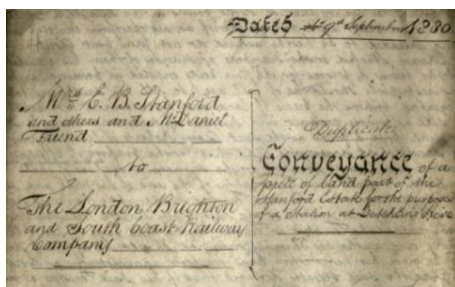 Dated 9th September 1880
Mrs. E. B. Stanford
and others and Mr. Daniel
Friend
to
The London Brighton
and South Coast Railway
Company
Duplicate
Conveyance of a
piece of land part of the
Stanford Estate for the purpose
of a Station at Dutchling Rise